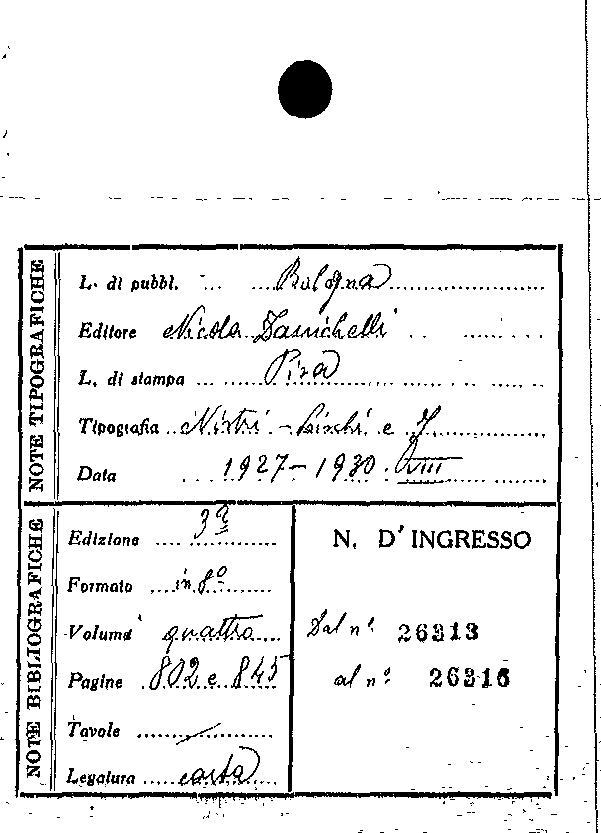 NOTE TIPOGRAFICHE
L. di pubbl. Bologna
Editore Nicola Zanichelli
L. di stampa Pisa
Tipografia Nistri - Lischi e F.
Data 1927-1930. VIII
NOTE BIBLIOGRAFICHE
Edizione 3ª
Formato in 8º
Volumi quattro
Pagine 802 e 845
Tavole
Legatura carta
N. D'INGRESSO
Dal nº 26313
al nº 26316